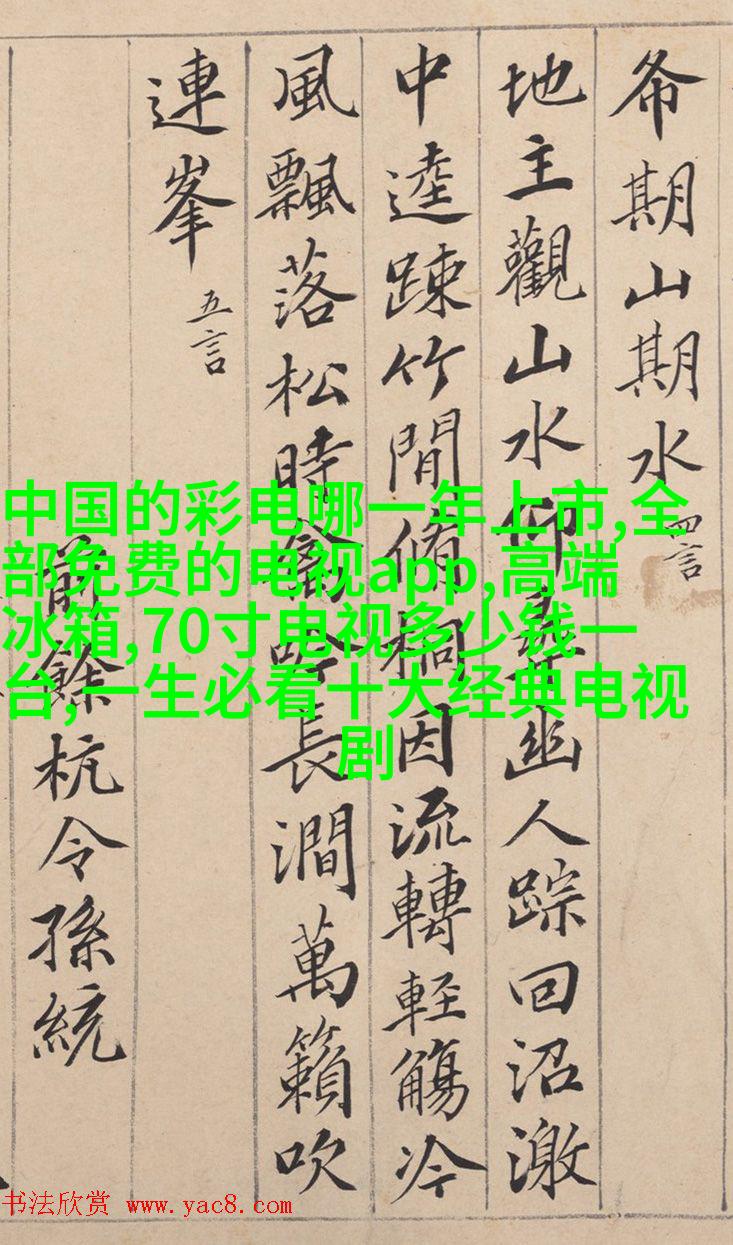 希期山期水 四言
地主觀山水仰尋幽人踪回沼激
中逵踈竹間脩桐因流轉輕觴冷
風飄落松時禽吟長澗萬籟吹
連峯 五言
前餘杭令孫統
中国的彩电哪一年上市,全
部免费的电视app,高端
冰箱,70寸电视多少钱一
台,一生必看十大经典电视
剧
书法欣赏 www.yac8.com